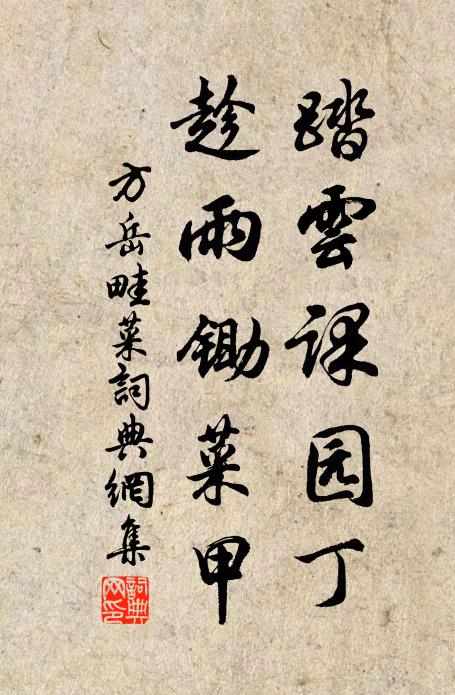 踏雲課园丁
趁雨鋤菜甲
方岳畦菜詞典網集
詞典網印